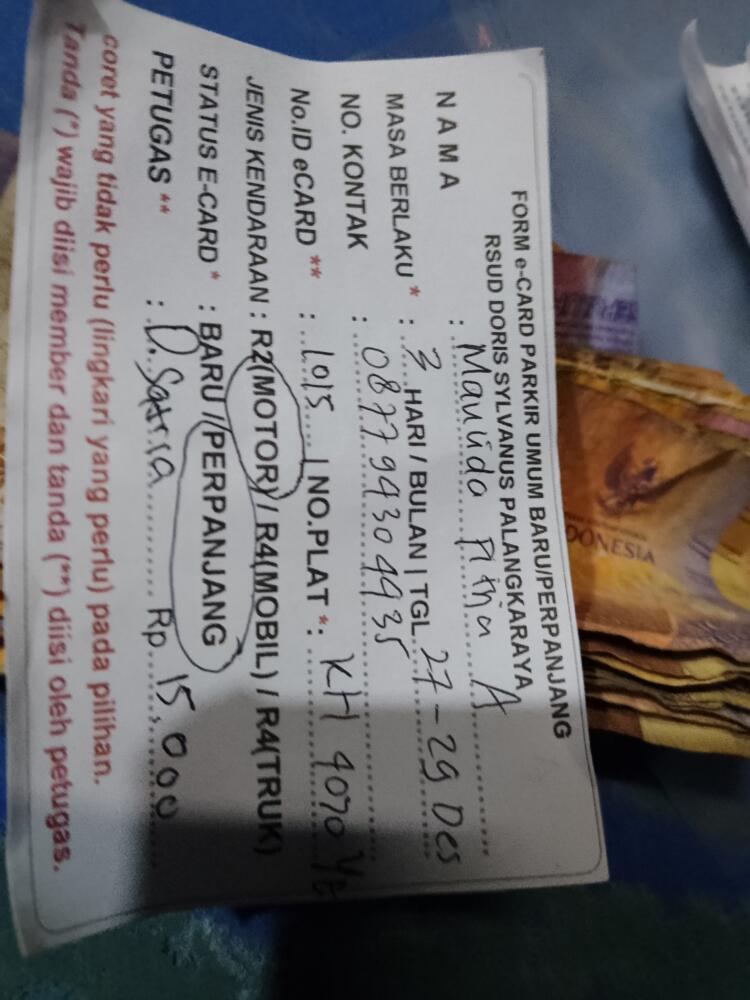 FORM e-CARD PARKIR UMUM BARU/PERPANJANG
RSUD DORIS SYLVANUS PALANGKARAYA
N A M A : Maulida A
MASA BERLAKU * : 3 HARI / BULAN | TGL. 27 - 29 Des
NO. KONTAK : 087794304935
No.ID eCARD ** : 1015 | NO.PLAT * : KH 4070
JENIS KENDARAAN : R2(MOTOR) / R4(MOBIL) / R4(TRUK)
STATUS E-CARD * : BARU / PERPANJANG
PETUGAS ** : D. Satria Rp. 15.000
coret yang tidak perlu (lingkari yang perlu) pada pilihan.
Tanda (*) wajib diisi member dan tanda (**) diisi oleh petugas.